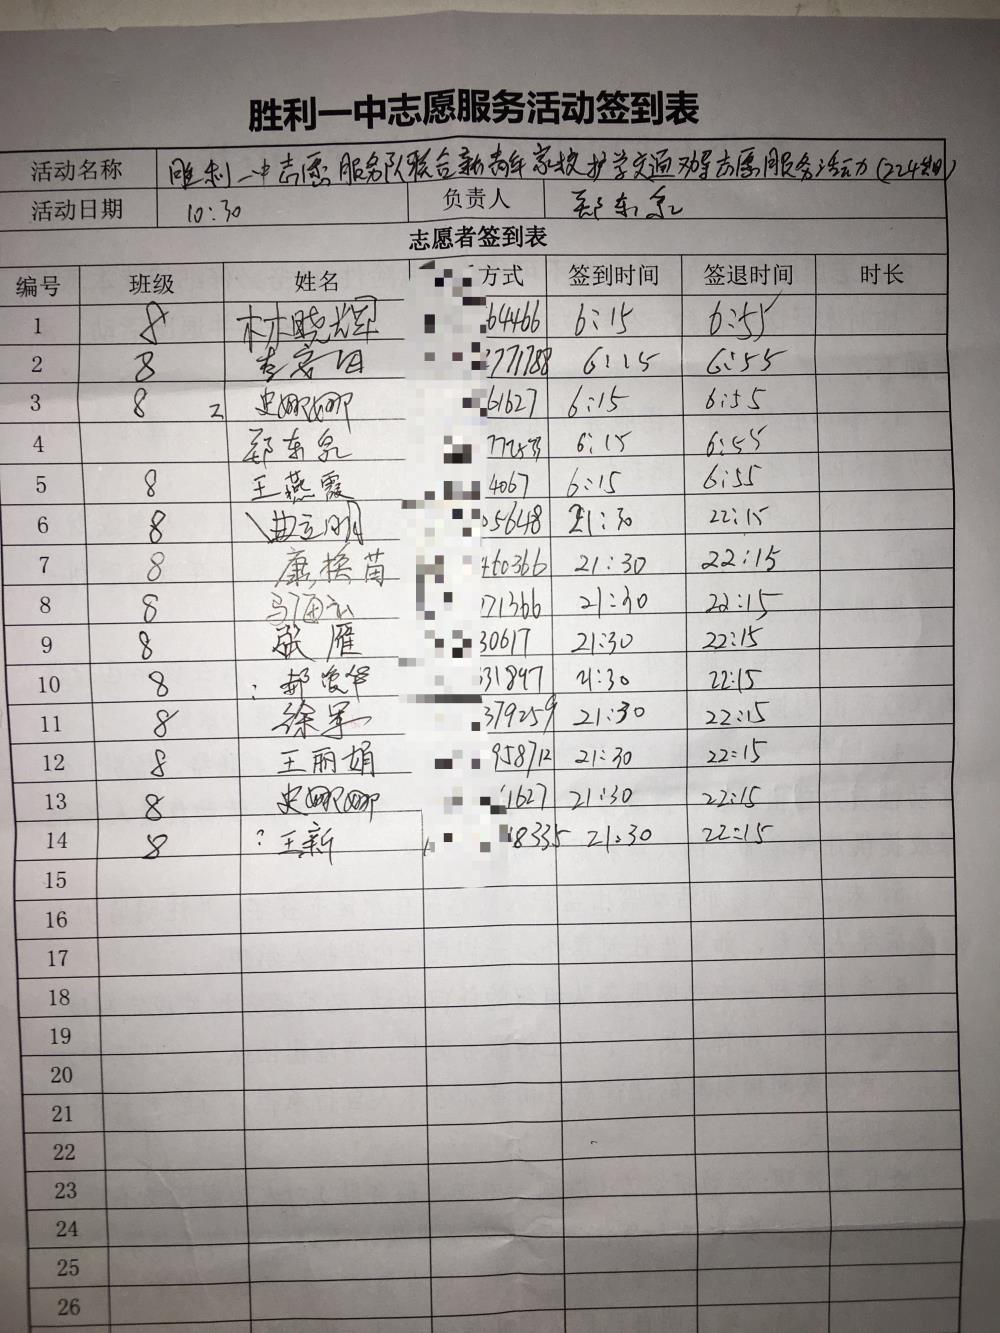 胜利一中志愿服务活动签到表
活动名称 胜利一中志愿服务队联合新青年家校护学交通劝导志愿服务活动(224期)
活动日期 10:30 负责人 郑东泉
志愿者签到表
编号 班级 姓名 方式 签到时间 签退时间 时长
1 8 林晓辉 64466 6:15 6:55
2 8 771788 6:15 6:55
3 8 史娜娜 61627 6:15 6:55
4 郑东泉 6:15 6:55
5 8 王燕霞 4067 6:15 6:55
6 8 曲立明 05648 21:30 22:15
7 8 康换苗 460366 21:30 22:15
8 8 71366 21:30 22:15
9 8 雁 30617 21:30 22:15
10 8 郝俊华 31897 21:30 22:15
11 8 徐军 379259 21:30 22:15
12 8 王丽娟 958712 21:30 22:15
13 8 史娜娜 1627 21:30 22:15
14 8 ? 王新 8335 21:30 22:15
15
16
17
18
19
20
21
22
23
24
25
26